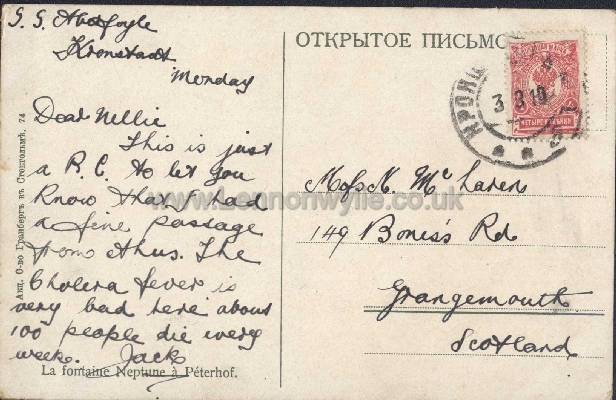 S. S. Aberfoyle
Kronstadt
Monday
Dear Nellie
This is just
a P.C. to let you
know that I had
a fine passage
from Ahus. The
Cholera fever is
very bad here about
100 people die every
week. Jack
La fontaine Neptune à Péterhof.
Акц. О-во Гранбергъ въ Стокгольмѣ. 74
ОТКРЫТОЕ ПИСЬМО
КРОНШ
3 8 10
ЧЕТЫРЕ КОПѢЙКИ
Miss N. McLaren
149 Boness Rd
Grangemouth
Scotland
www.Lennonwylie.co.uk